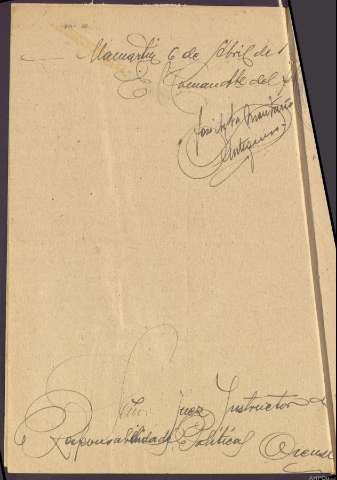 Mamartin 6 de Abril de 1
El Comandante del
José
Antequera
Sr. Juez Instructor de
Responsabilidades Políticas Orense